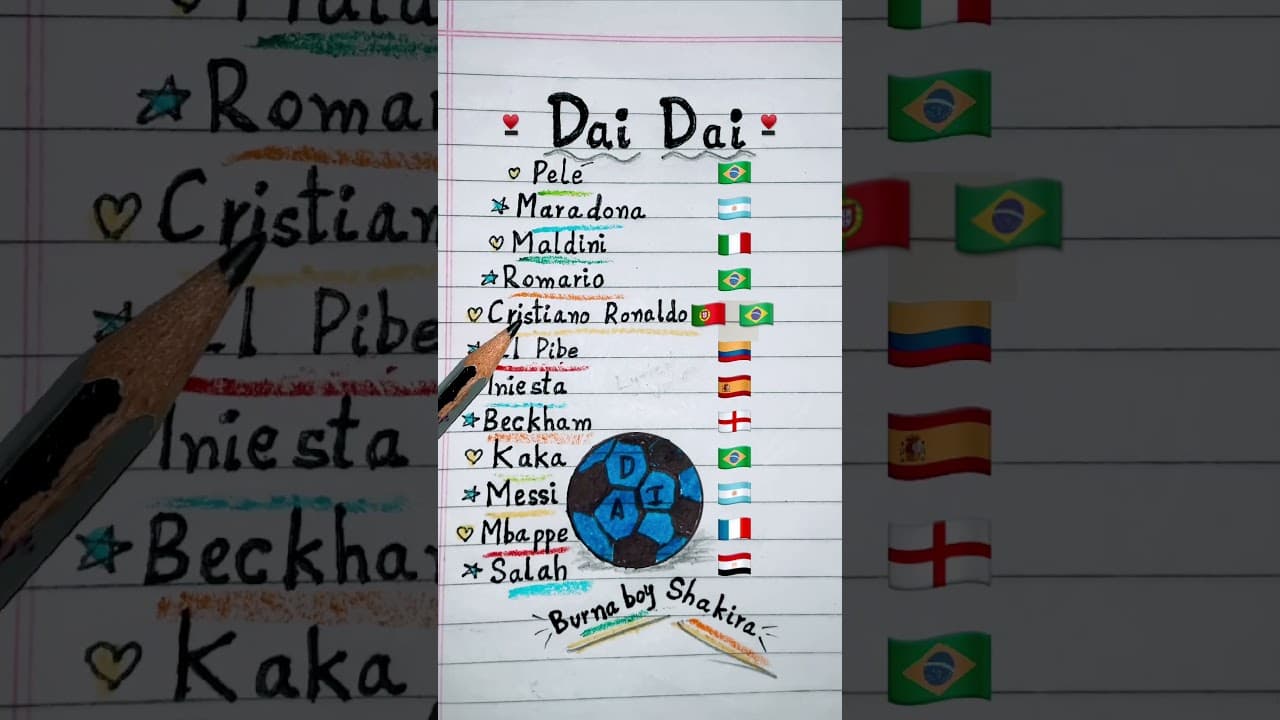 Dai Dai
Pelé
Maradona
Maldini
Romario
Cristiano Ronaldo
El Pibe
Iniesta
Beckham
Kaka
Messi
Mbappe
Salah
D
A I
Burna boy Shakira